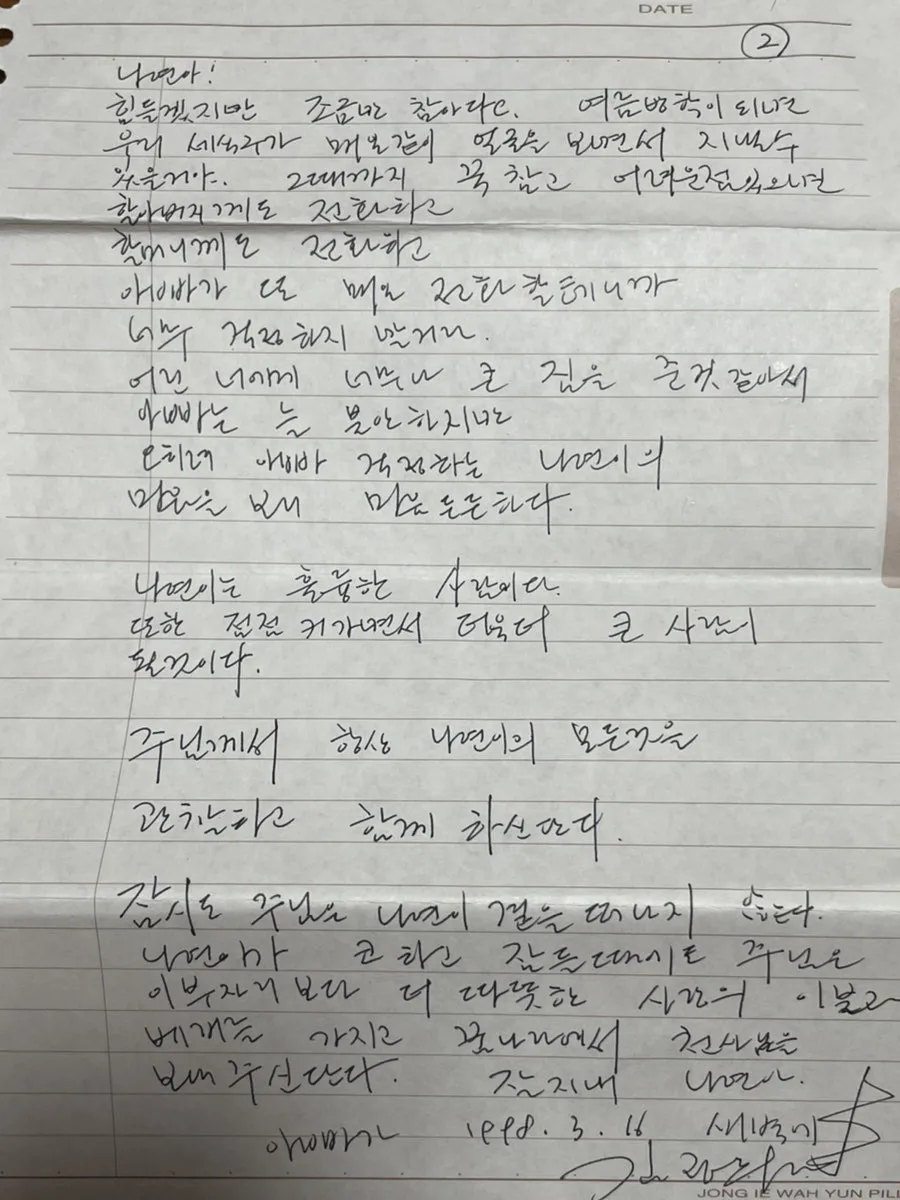 DATE
②
나연아!
힘들겠지만 조금만 참아다오. 여름방학이 되니면
우리 세식구가 매일같이 얼굴을 보면서 지낼수
있을거야. 그때까지 꼭 참고 어려운점 있으니면
할아버지께도 전화하고
할머니께도 전화하고
아빠가 또 매일 전화할테니까
너무 걱정하지 말거라.
어린 너에게 너무나 큰 짐을 준것 같아서
아빠는 늘 불안하지만
오히려 아빠 걱정하는 나연이의
마음을 보며 마음 든든하다.
나연이는 훌륭한 사람이다.
또한 점점 커가면서 더욱더 큰 사람이
될것이다.
주님께서 항상 나연이의 모든것을
관찰하고 함께 하신단다.
잠시도 주님은 나연이 곁을 떠나지 않는다.
나연이가 코하고 잠들때에도 주님은
이부자리 보다 더 따뜻한 사랑의 이불과
베개를 가지고 꿈나라에서 천사님을
보내주신단다. 잘지내 나연아.
아빠가 1998. 3. 16 새벽에
JONG IE WAH YUN PIL